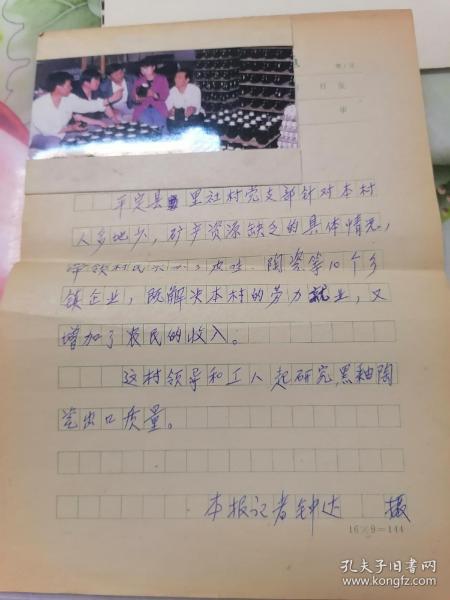 平定县里社村党支部针对本村
人多地少，矿产资源缺乏的具体情况，
带领村民 陶瓷等10个乡
镇企业，既解决本村的劳力就业，又
增加了农民的收入。
这村领导和工人起研究黑釉陶
瓷出口质量。
本报记者钟达 摄
16×9=144
孔夫子旧书网
www.kongfz.com